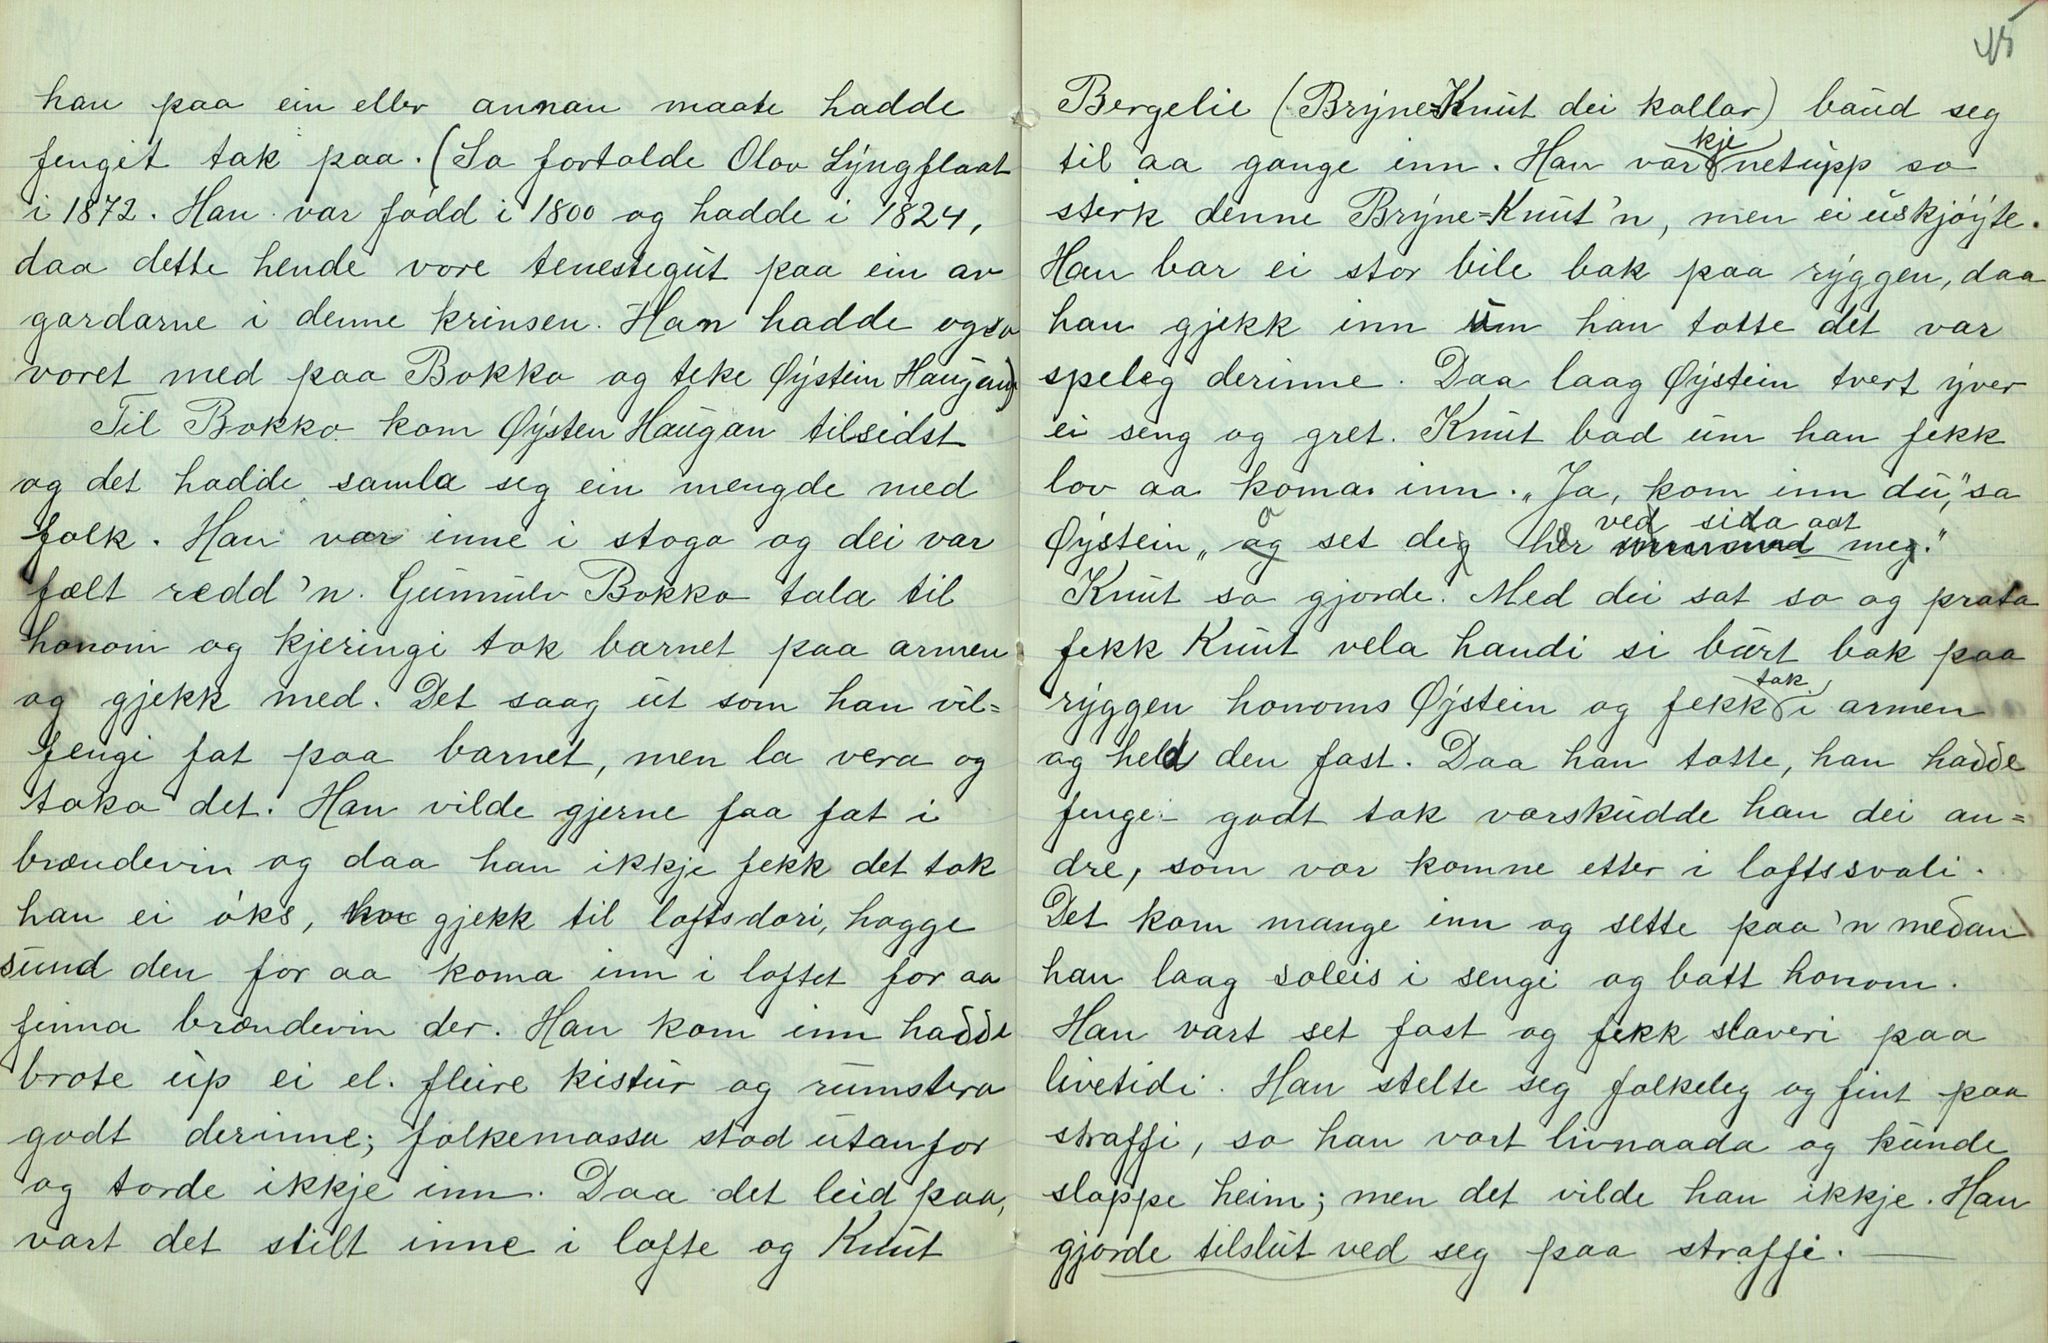 han paa ein eller annan maate hadde
fengit tak paa. (So fortalde Olov Lyngflaat
i 1872. Han var fødd i 1800 og hadde i 1824,
daa dette hende vore tenestegut paa ein av
gardarne i denne krinsen. Han hadde ogso
voret med paa Bokko og teke Øystein Haugan)
Til Bokko kom Øysten Haugan tilsidst
og det hadde samla seg ein mengde med
folk. Han var inne i stogo og dei var
fælt redd'n. Gunnulv Bokko tala til
honom og kjeringi tok barnet paa armen
og gjekk med. Det saag ut som han vil=
fengi fat paa barnet, men la vera og
toko det. Han vilde gjerne faa fat i
brændevin og daa han ikkje fekk det tok
han ei øks, gjekk til loftsdøri, hogge
sund den for aa koma inn i loftet for aa
finna brændevin der. Han kom inn hadde
brote up ei el. fleire kistur og rumstera
godt derinne; folkemassa stod utanfor
og torde ikkje inn. Daa det leid paa,
vart det stilt inne i lofte og Knut
45
Bergelie (Bryne=Knut dei kallar) baud seg
til aa gange inn. Han var kje netupp so
sterk denne Bryne=Knut'n, men ei uskjøyte.
Han bar ei stor bile bak paa ryggen, daa
han gjekk inn um han totte det var
speleg derinne. Daa laag Øystein tvert yver
ei seng og gret. Knut bad um han fekk
lov aa koma inn. „Ja, kom inn du," sa
Øystein „å set deg her ved sida aat meg."
Knut so gjorde. Med dei sat so og prata
fekk Knut vela handi si burt bak paa
ryggen honoms Øystein og fekk tak i armen
og held den fast. Daa han totte, han hadde
fenge godt tak varskudde han dei an=
dre, som var komne etter i loftssvali.
Det kom mange inn og sette paa'n medan
han laag soleis i sengi og batt honom.
Han vart set fast og fekk slaveri paa
livetidi. Han stelte seg folkeleg og fint paa
straffi, so han vart livnaada og kunde
sloppe heim; men det vilde han ikkje. Han
gjorde tilslut ved seg paa straffi. —